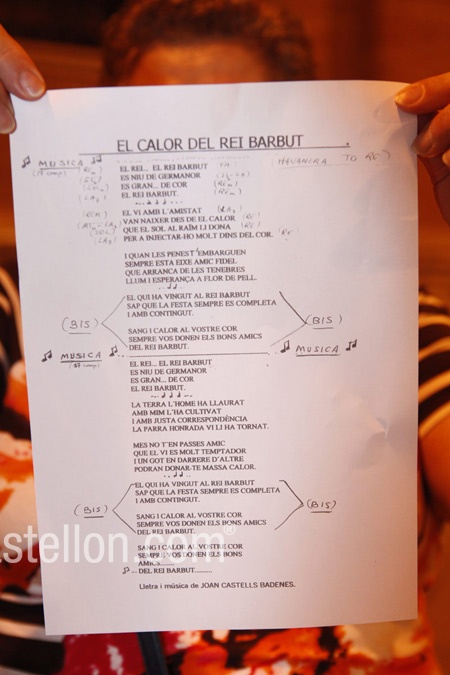 EL CALOR DEL REI BARBUT
MUSICA (HAVANIRA TO RE)
EL REI... EL REI BARBUT
ES NIU DE GERMANOR
ES GRAN... DE COR
EL REI BARBUT.
EL VI AMB L'AMISTAT
VAN NAIXER DES DE EL CALOR
QUE EL SOL AL RAÏM LI DONA
PER A INJECTAR-HO MOLT DINS DEL COR.
I QUAN LES PENES T'EMBARGUEN
SEMPRE ESTA EIXE AMIC FIDEL
QUE ARRANCA DE LES TENEBRES
LLUM I ESPERANÇA A FLOR DE PELL.
EL QUI HA VINGUT AL REI BARBUT
SAP QUE LA FESTA SEMPRE ES COMPLETA
I AMB CONTINGUT.
(BIS) (BIS)
SANG I CALOR AL VOSTRE COR
SEMPRE VOS DONEN ELS BONS AMICS
DEL REI BARBUT.
MUSICA MUSICA
EL REI... EL REI BARBUT
ES NIU DE GERMANOR
ES GRAN... DE COR
EL REI BARBUT.
LA TERRA L'HOME HA LLAURAT
AMB MIM L'HA CULTIVAT
I AMB JUSTA CORRESPONDÈNCIA
LA PARRA HONRADA VI LI HA TORNAT.
MES NO T'EN PASSES AMIC
QUE EL VI ES MOLT TEMPTADOR
I UN GOT EN DARRERE D'ALTRE
PODRAN DONAR-TE MASSA CALOR.
EL QUI HA VINGUT AL REI BARBUT
SAP QUE LA FESTA SEMPRE ES COMPLETA
I AMB CONTINGUT.
(BIS) (BIS)
SANG I CALOR AL VOSTRE COR
SEMPRE VOS DONEN ELS BONS AMICS
DEL REI BARBUT.
SANG I CALOR AL VOSTRE COR
SEMPRE VOS DONEN ELS BONS
AMICS
DEL REI BARBUT
Lletra i música de JOAN CASTELLS BADENES.
astellon.com®